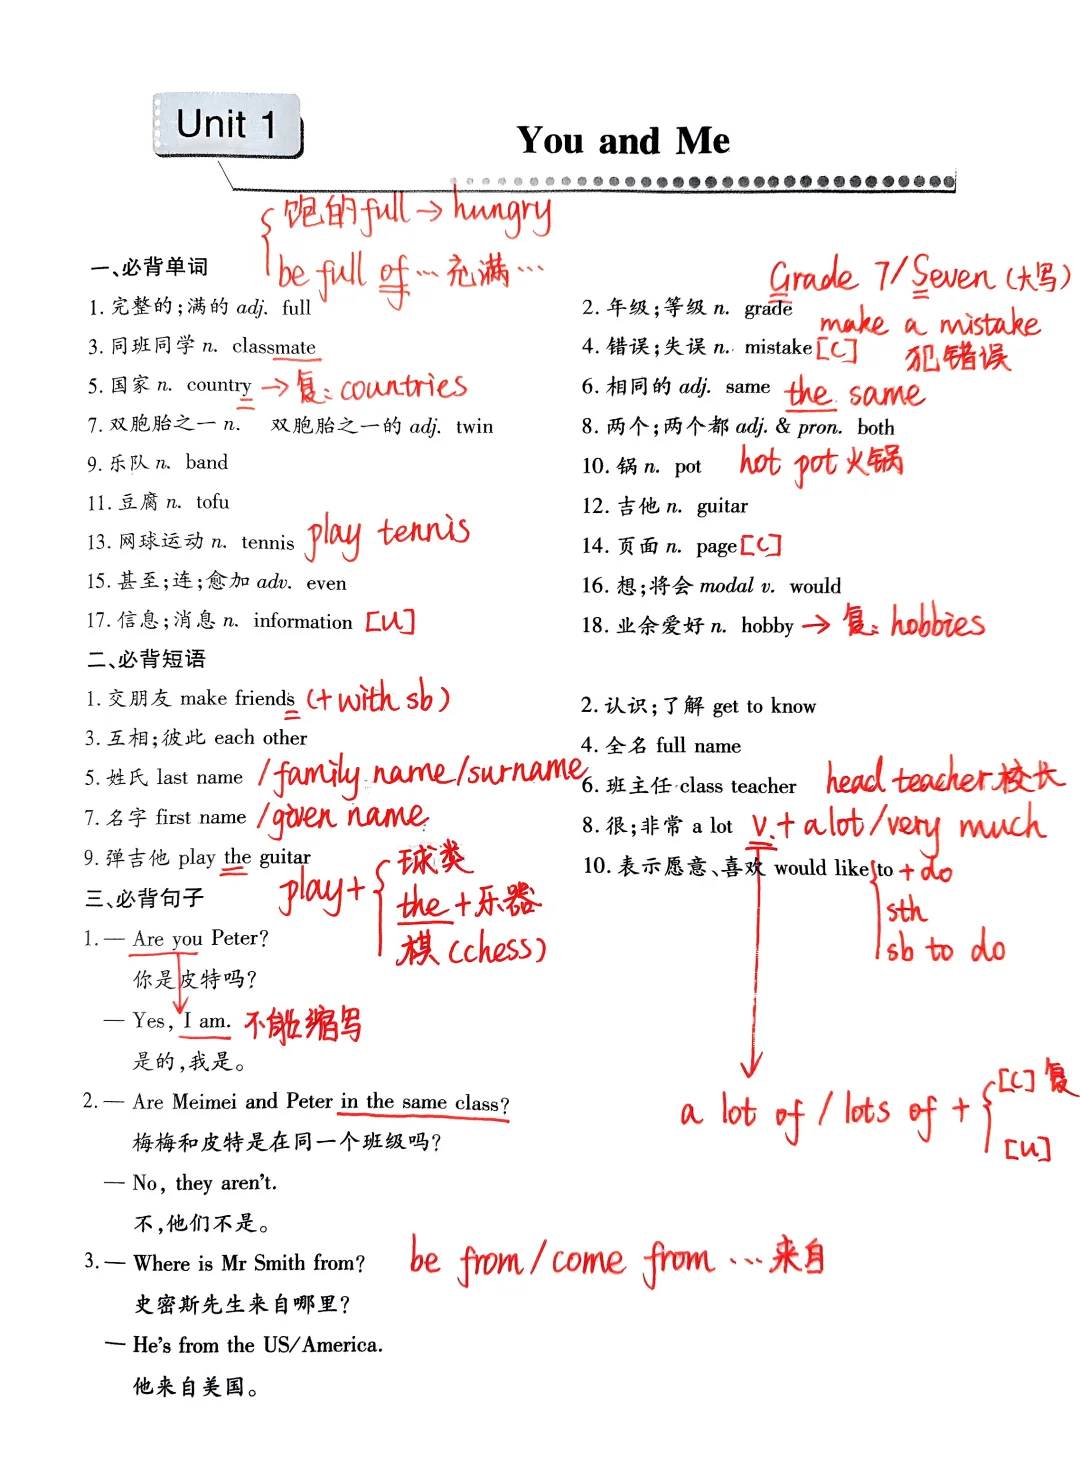 Unit 1
You and Me
饱的full → hungry
be full of … 充满 …
一、必背单词
Grade 7/Seven (大写)
1. 完整的;满的 adj. full
2. 年级;等级 n. grade
make a mistake
3. 同班同学 n. classmate
4. 错误;失误 n. mistake [C] 犯错误
5. 国家 n. country → 复: countries
6. 相同的 adj. same the same
7. 双胞胎之一 n. 双胞胎之一的 adj. twin
8. 两个;两个都 adj. & pron. both
9. 乐队 n. band
10. 锅 n. pot hot pot 火锅
11. 豆腐 n. tofu
12. 吉他 n. guitar
13. 网球运动 n. tennis play tennis
14. 页面 n. page [C]
15. 甚至;连;愈加 adv. even
16. 想;将会 modal v. would
17. 信息;消息 n. information [U]
18. 业余爱好 n. hobby → 复: hobbies
二、必背短语
1. 交朋友 make friends (+with sb)
2. 认识;了解 get to know
3. 互相;彼此 each other
4. 全名 full name
5. 姓氏 last name /family name/surname
6. 班主任 class teacher head teacher校长
7. 名字 first name /given name
8. 很;非常 a lot v.+a lot/very much
9. 弹吉他 play the guitar
10. 表示愿意、喜欢 would like to + do
sth
sb to do
play+ 球类
the + 乐器
棋 (chess)
三、必背句子
1. — Are you Peter?
你是皮特吗?
— Yes, I am. 不能缩写
是的,我是。
2. — Are Meimei and Peter in the same class?
a lot of / lots of + [C] 复
[U]
梅梅和皮特是在同一个班级吗?
— No, they aren't.
不,他们不是。
3. — Where is Mr Smith from? be from/come from … 来自
史密斯先生来自哪里?
— He's from the US/America.
他来自美国。